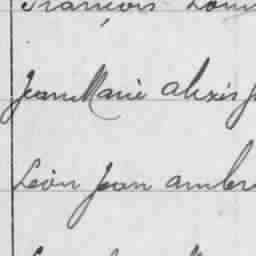 François Louis
Jean Marie Alexis J
Léon Jean Ambr